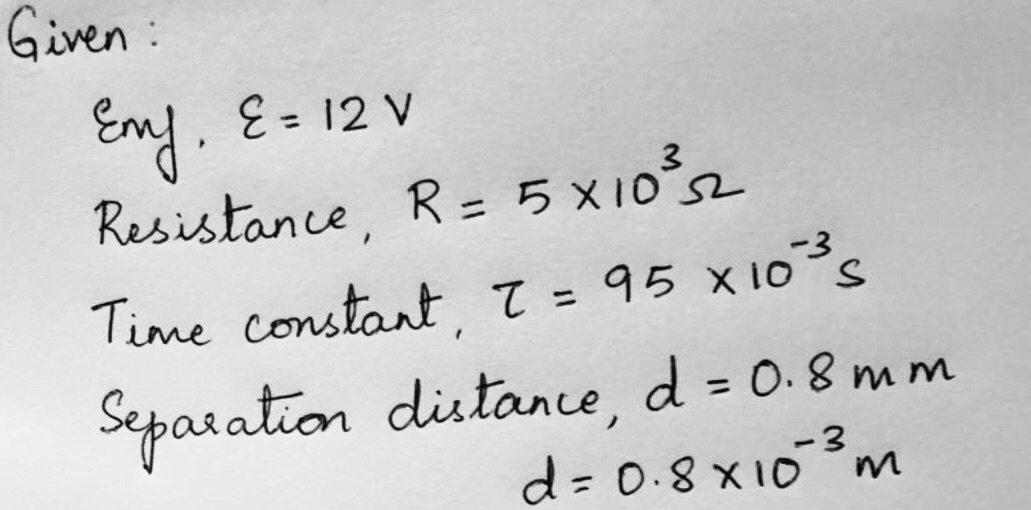 Given :
Emf, ε = 12 V
Resistance, R = 5 × 10³ Ω
Time constant, τ = 95 × 10⁻³ s
Separation distance, d = 0.8 mm
d = 0.8 × 10⁻³ m